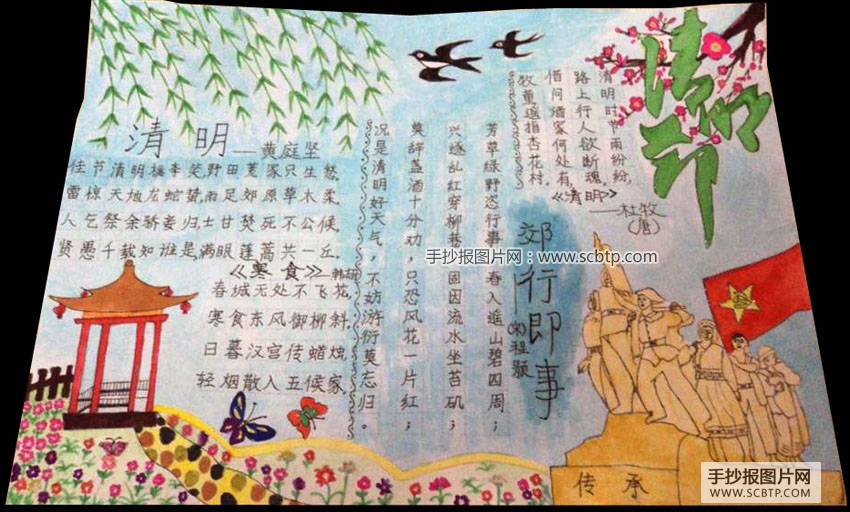 清明节
清明时节雨纷纷,
路上行人欲断魂,
借问酒家何处有,
牧童遥指杏花村。
《清明》
——杜牧
(唐)
清明——黄庭坚
佳节清明桃李笑野田荒冢只生愁。
雷惊天地龙蛇蛰雨足郊原草木柔。
人乞祭余骄妾归士甘焚死不公候。
贤愚千载知谁是满眼蓬蒿共一丘。
《寒食》—韩翃
春城无处不飞花,
寒食东风御柳斜。
日暮汉宫传蜡烛,
轻烟散入五候家。
郊行即事
(宋)程颢
芳草绿野恣行事,春入遥山碧四周;
兴逐乱红穿柳巷,固因流水坐苔矶;
莫辞盏酒十分劝,只恐风花一片红;
况是清明好天气,不妨游衍莫忘归。
手抄报图片网:www.scbtp.com
传承
手抄报图片网
WWW.SCBTP.COM